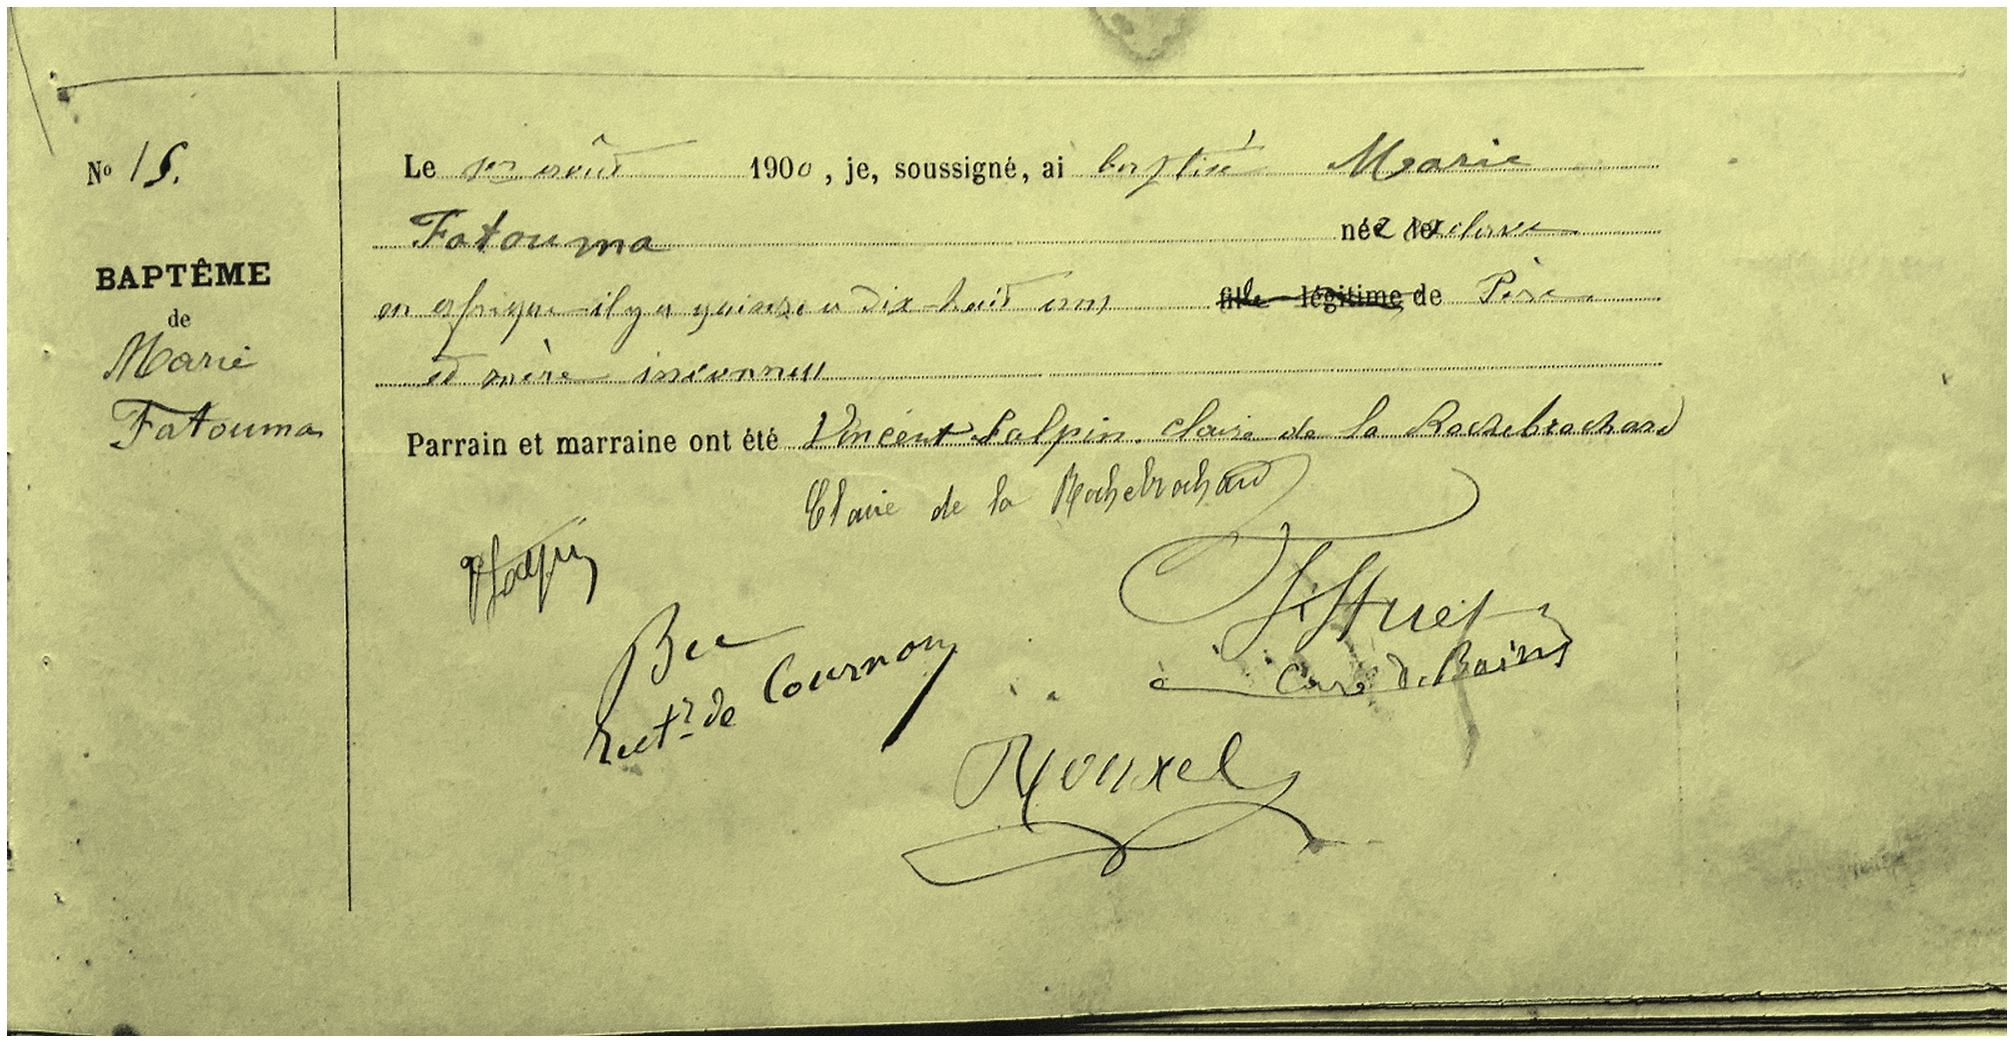 Nº 15.
BAPTÊME
de
Marie
Fatouma
Le 1er août 1900, je, soussigné, ai baptisé Marie
Fatouma née esclave
en afrique il y a quinze a dix-huit ans fille légitime de Père
et mère inconnus
Parrain et marraine ont été Vincent Salpin. Claire de la Rochebrochard
Claire de la Rochebrochard
Bec
Rectr de Cournon
Huet
Curé de Bains
Rouxel